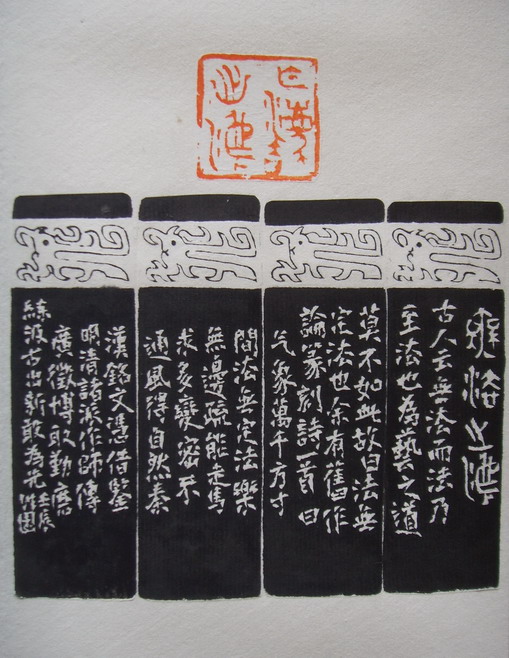 無法之灋
古人云無法而法乃
至法也為藝之道
莫不如此故曰法無
定法也余有舊作
論篆刻詩一首曰
气象萬千方寸
間法無定法樂
無邊疏能走馬
求多變密不
通風得自然秦
漢銘文憑借鑒
明清諸派作師傳
廣徵博取勤磨
練汲古出新敢為先